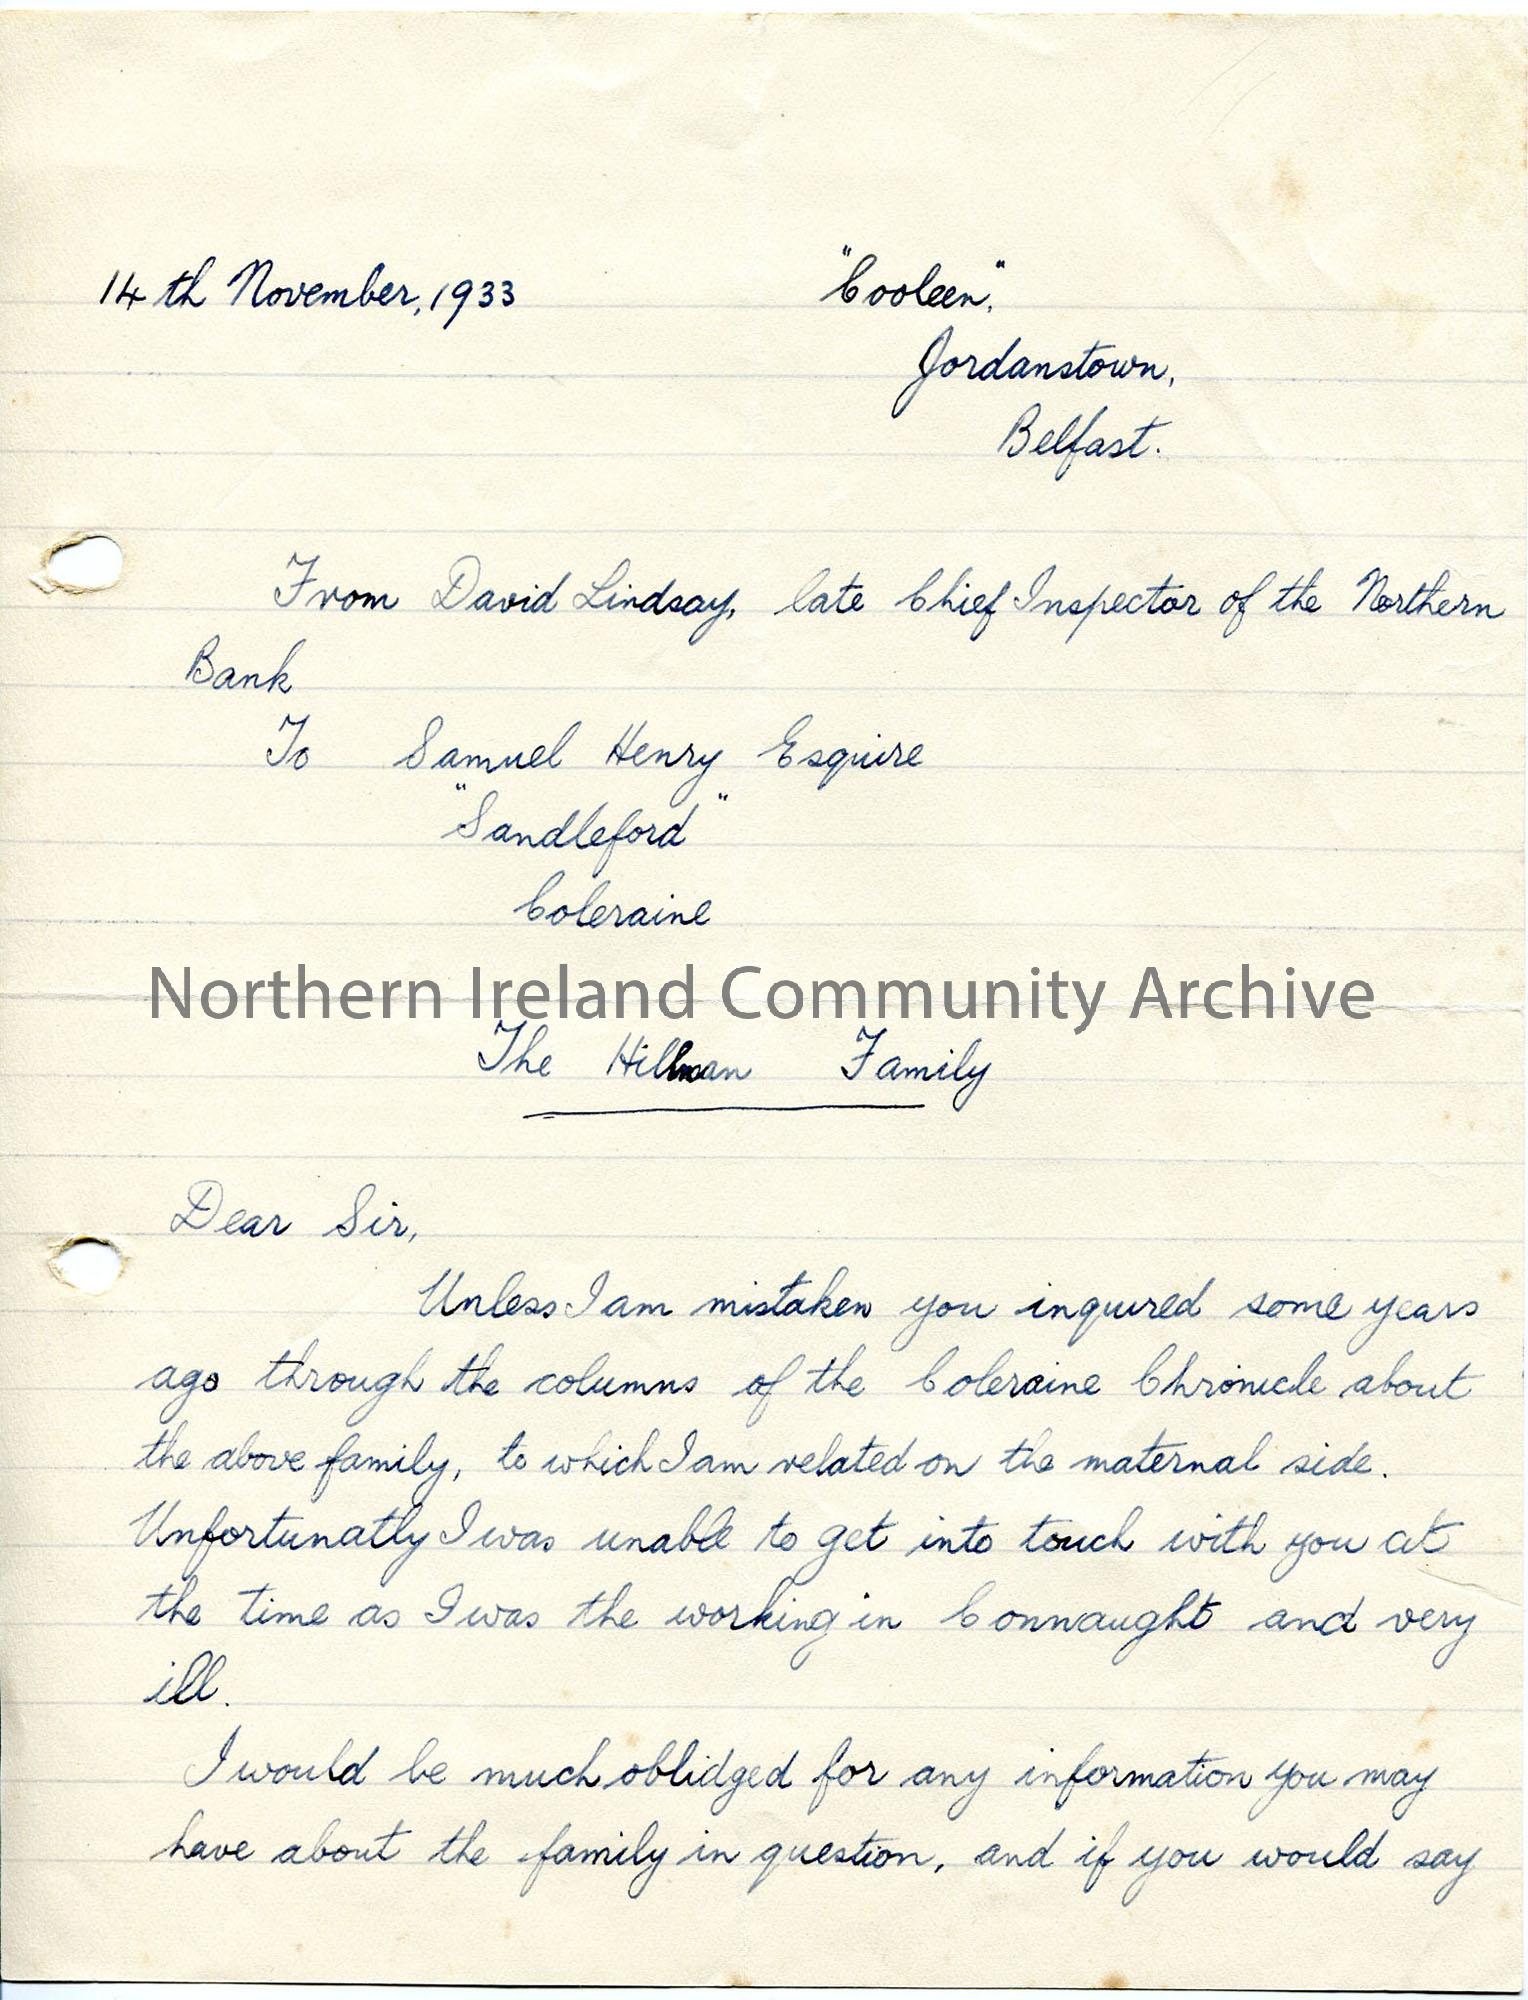 14th November, 1933 "Cooleen",
Jordanstown,
Belfast.
From David Lindsay, late Chief Inspector of the Northern
Bank
To Samuel Henry Esquire
"Sandleford"
Coleraine
Northern Ireland Community Archive
The Hillman Family
Dear Sir,
Unless I am mistaken you inquired some years
ago through the columns of the Coleraine Chronicle about
the above family, to which I am related on the maternal side.
Unfortunatly I was unable to get into touch with you at
the time as I was the working in Connaught and very
ill.
I would be much oblidged for any information you may
have about the family in question, and if you would say